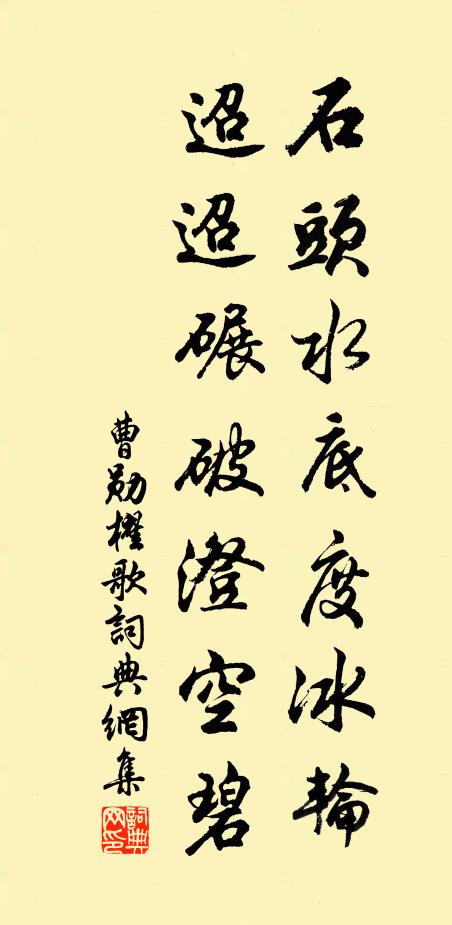 石頭水底度冰輪
迢迢碾破澄空碧
曹勛櫂歌詞典網集
詞典網印